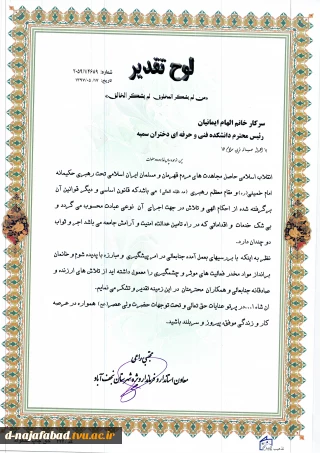 لوح تقدیر
شماره: ۲۰۵۹/۱۴۶۸۹
تاریخ: ۱۳۹۷/۰۵/۱۷
«من لم یشکر المخلوق، لم یشکر الخالق»
سرکار خانم الهام ایمانیان
رئیس محترم دانشکده فنی و حرفه ای دختران سمیه
انقلاب اسلامی حاصل مجاهدت های مردم قهرمان و مسلمان ایران اسلامی تحت رهبری حکیمانه
امام خمینی(ره) و مقام معظم رهبری (مد ظله العالی) می باشد که قانون اساسی و دیگر قوانین آن
برگرفته شده از احکام الهی و تلاش در جهت اجرای آن نوعی عبادت محسوب می گردد و
بی شک خدمات و اقداماتی که در راه تامین عدالت، امنیت و آرامش جامعه می باشد اجر و ثواب
دو چندان دارد.
نظر به اینکه با بررسیهای بعمل آمده جنابعالی در امر پیشگیری و مبارزه با پدیده شوم و خانمان
برانداز مواد مخدر فعالیت های موثر و چشمگیری را معمول داشته اید از تلاش های ارزنده و
صادقانه جنابعالی و همکاران محترمتان در این زمینه تقدیر و تشکر می نمایم.
ان شاء ا... در پرتو عنایات حق تعالی و تحت توجهات حضرت ولی عصر(عج) همواره در عرصه
کار و زندگی موفق، پیروز و سربلند باشید.
مجتبی راعی
معاون استاندار و فرماندار ویژه شهرستان نجف آباد
d-najafabad.tvu.ac.ir